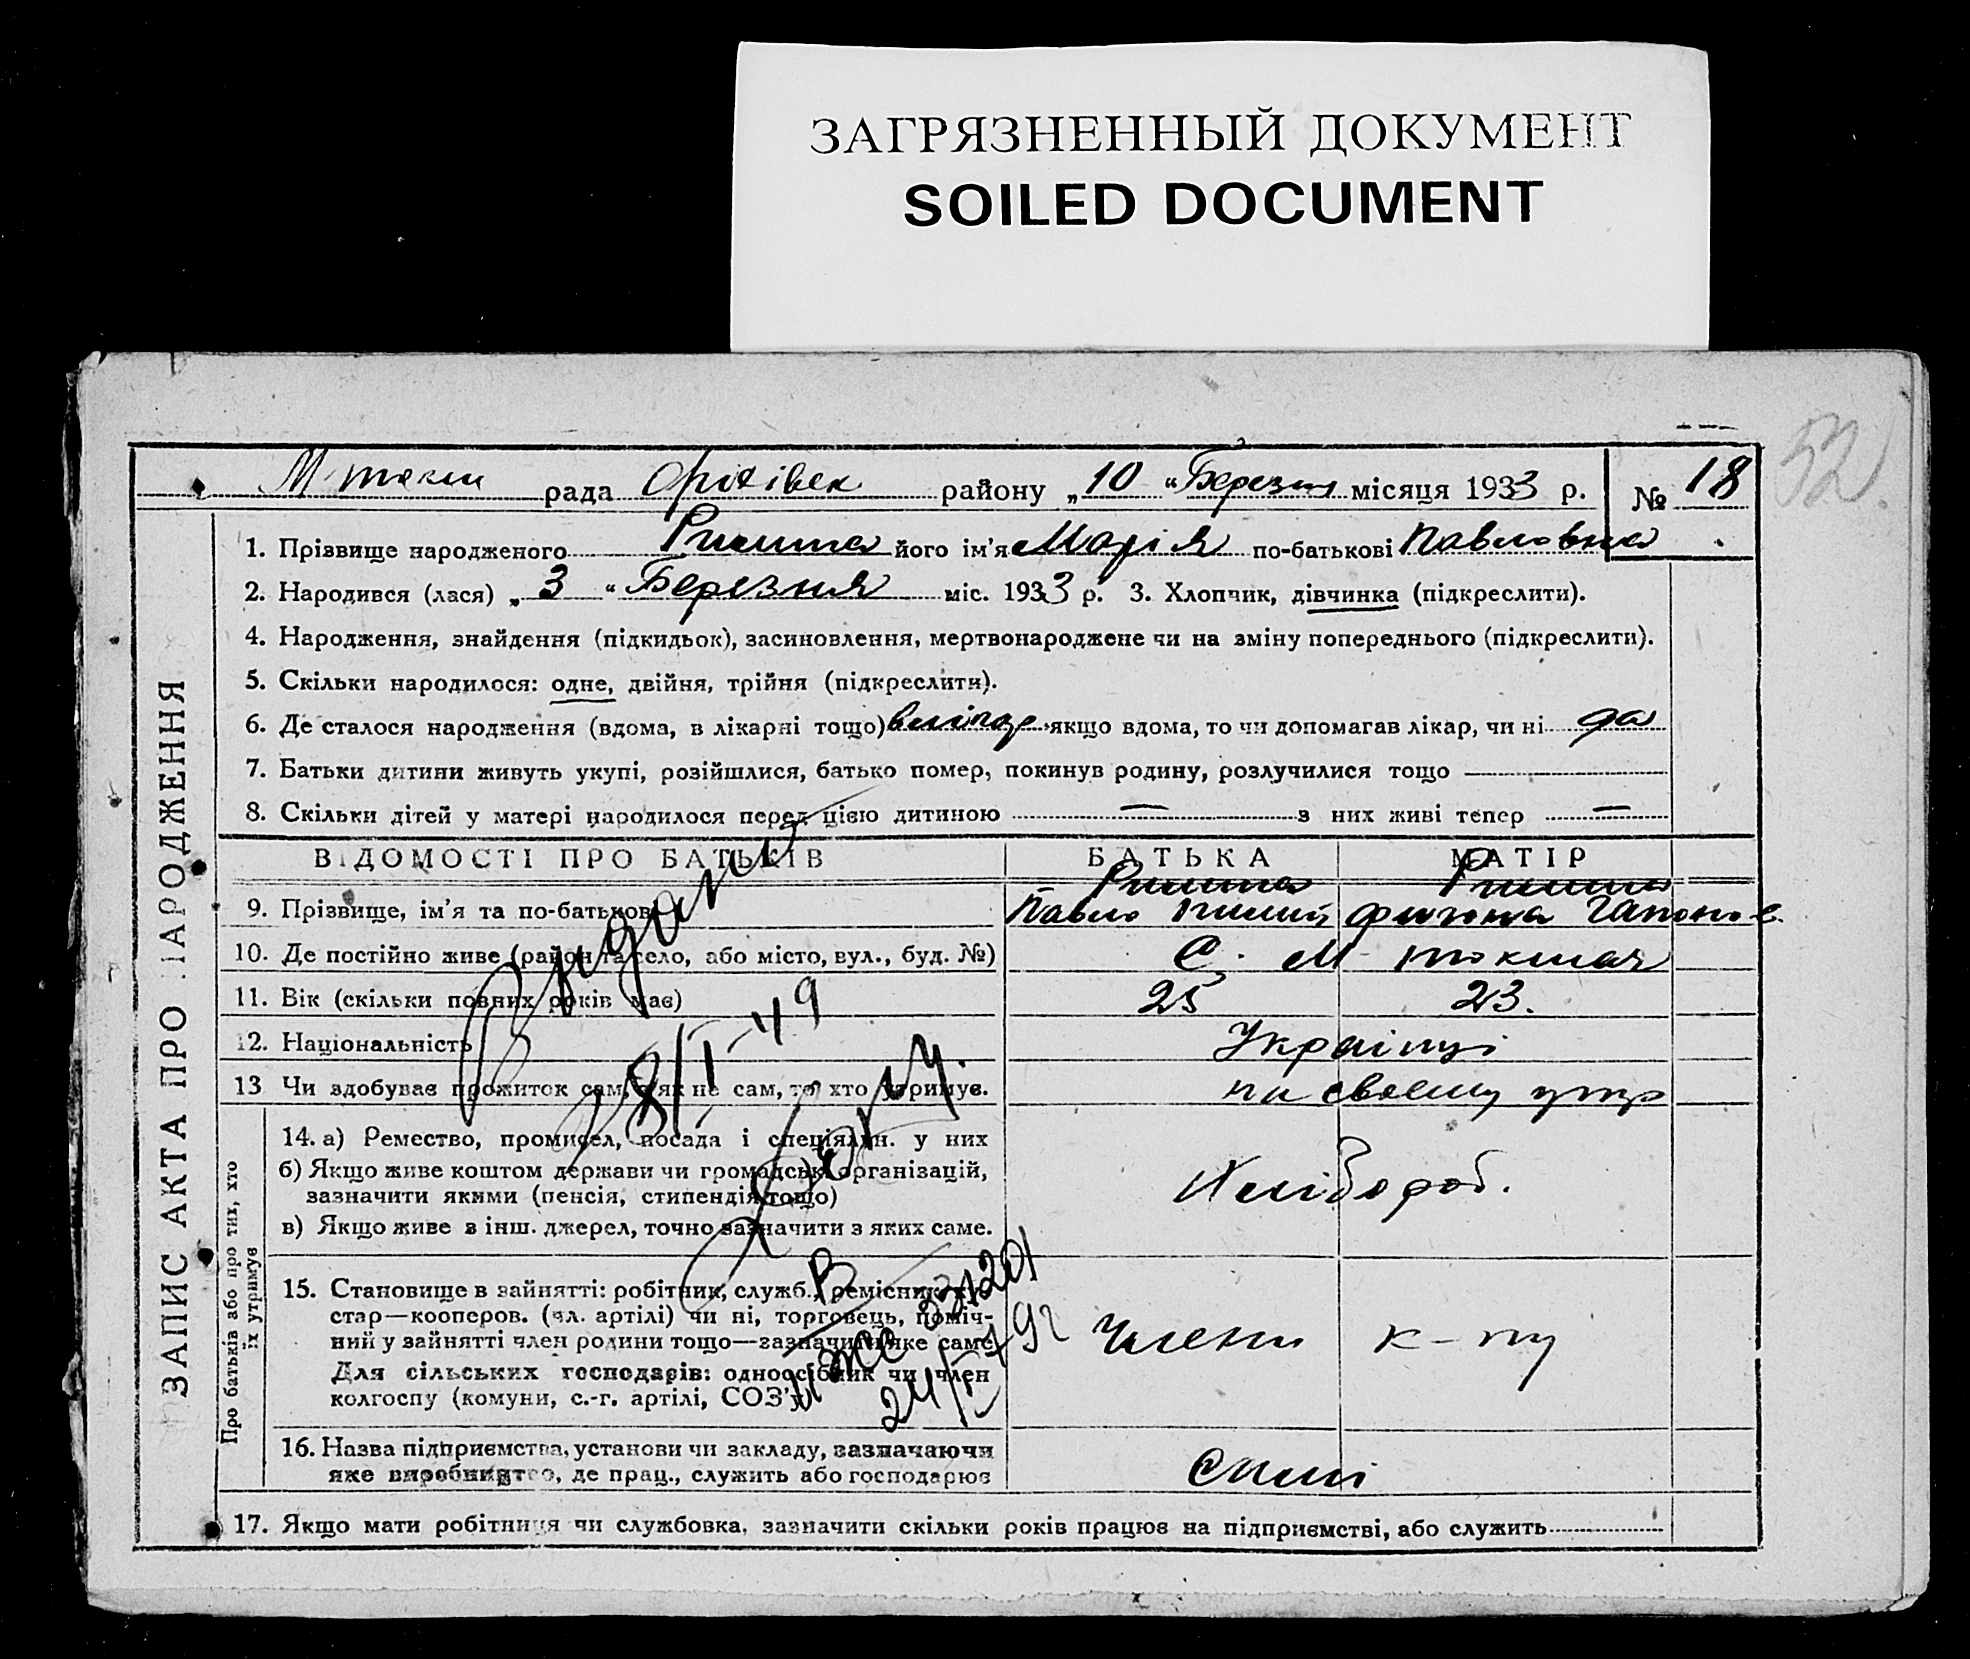 ЗАГРЯЗНЕННЫЙ ДОКУМЕНТ
SOILED DOCUMENT
52
рада Оріхівск району „10“ Березня місяця 1933 р. № 18
1. Прізвище народженого його ім'я Марія по-батькові Павловна
2. Народився (лася) „3“ Березня міс. 1933 р. 3. Хлопчик, дівчинка (підкреслити).
4. Народження, знайдення (підкидьок), засиновлення, мертвонароджене чи на зміну попереднього (підкреслити).
5. Скільки народилося: одне, двійня, трійня (підкреслити).
6. Де сталося народження (вдома, в лікарні тощо) якщо вдома, то чи допомагав лікар, чи ні да
7. Батьки дитини живуть укупі, розійшлися, батько помер, покинув родину, розлучилися тощо —
8. Скільки дітей у матері народилося перед цією дитиною — з них живі тепер —
ЗАПИС АКТА ПРО НАРОДЖЕННЯ
ВІДОМОСТІ ПРО БАТЬКІВ БАТЬКА МАТІР
9. Прізвище, ім'я та по-батькові Павло
10. Де постійно живе (район та село, або місто, вул., буд. №) С. М токмач
11. Вік (скільки повних років має) 25 23.
12. Національність Українці
13 Чи здобуває прожиток сам, а як не сам, то хто утримує. на своему утр
Про батьків або про тих, хто їх утримує
14. а) Ремество, промисел, посада і спеціяльн. у них
б) Якщо живе коштом держави чи громадськ. організацій,
зазначити якими (пенсія, стипендія тощо) Хлібороб.
в) Якщо живе з інш. джерел, точно зазначити з яких саме.
15. Становище в зайнятті: робітник, служб., ремісник, ку-
стар—кооперов. (чл. артілі) чи ні, торговець, поміч-
ний у зайнятті член родини тощо—зазначити яке саме Члени к-пу
Для сільських господарів: одноосібник чи член
колгоспу (комуни, с.-г. артілі, СОЗ'у)
16. Назва підприємства, установи чи закладу, зазначаючи
яке виробництво, де прац., служить або господарює
17. Якщо мати робітниця чи службовка, зазначити скільки років працює на підприємстві, або служить
Видано
28/I-49